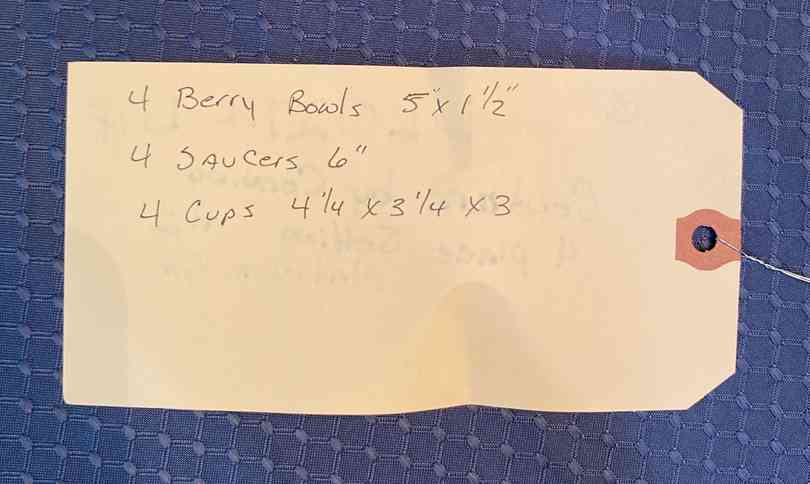 4 Berry Bowls 5"x 1 1/2"
4 Saucers 6"
4 Cups 4 1/4 x 3 1/4 x 3